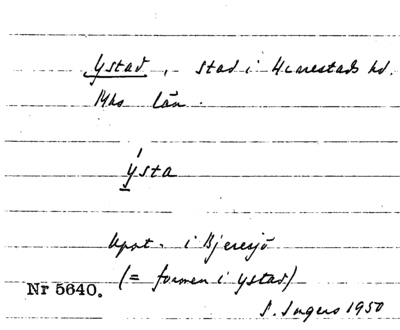 Ystad, stad i Herrestads hd.
Mhs län.
ýsta
Uppt. i Bjeresjö
(= formen i Ystad)
Nr 5640.
S. Ingers 1950